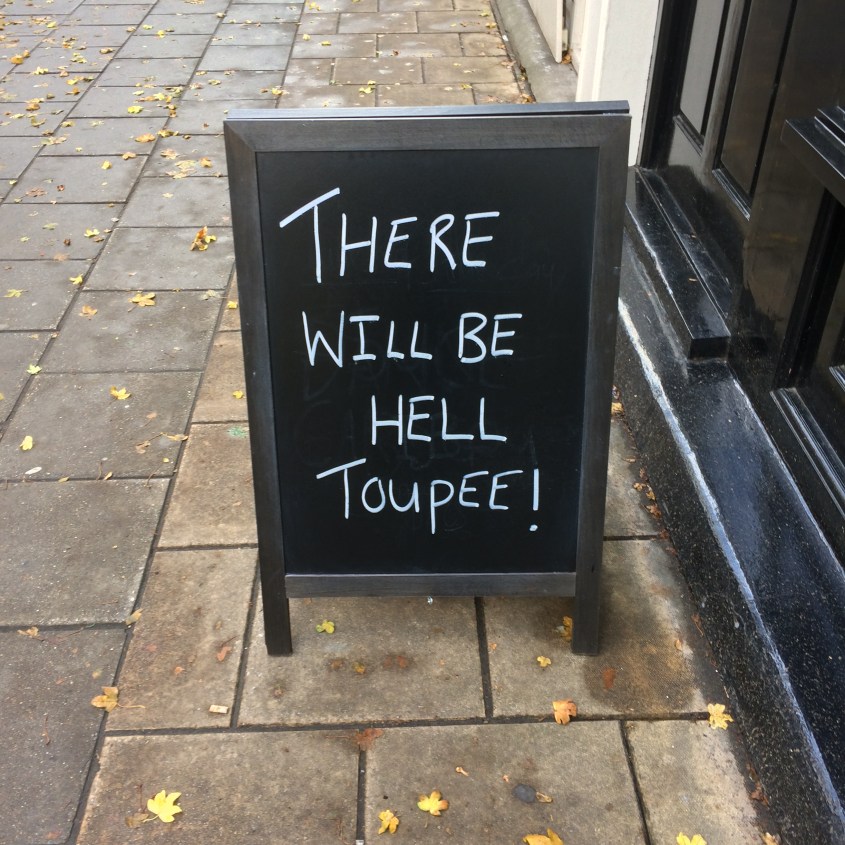 THERE
WILL BE
HELL
TOUPEE!